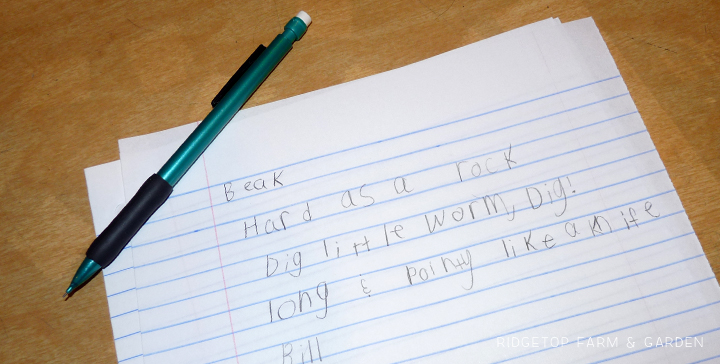 Beak
Hard as a rock
Dig little worm, Dig!
long & pointy like a knife
Bill
RIDGETOP FARM & GARDEN